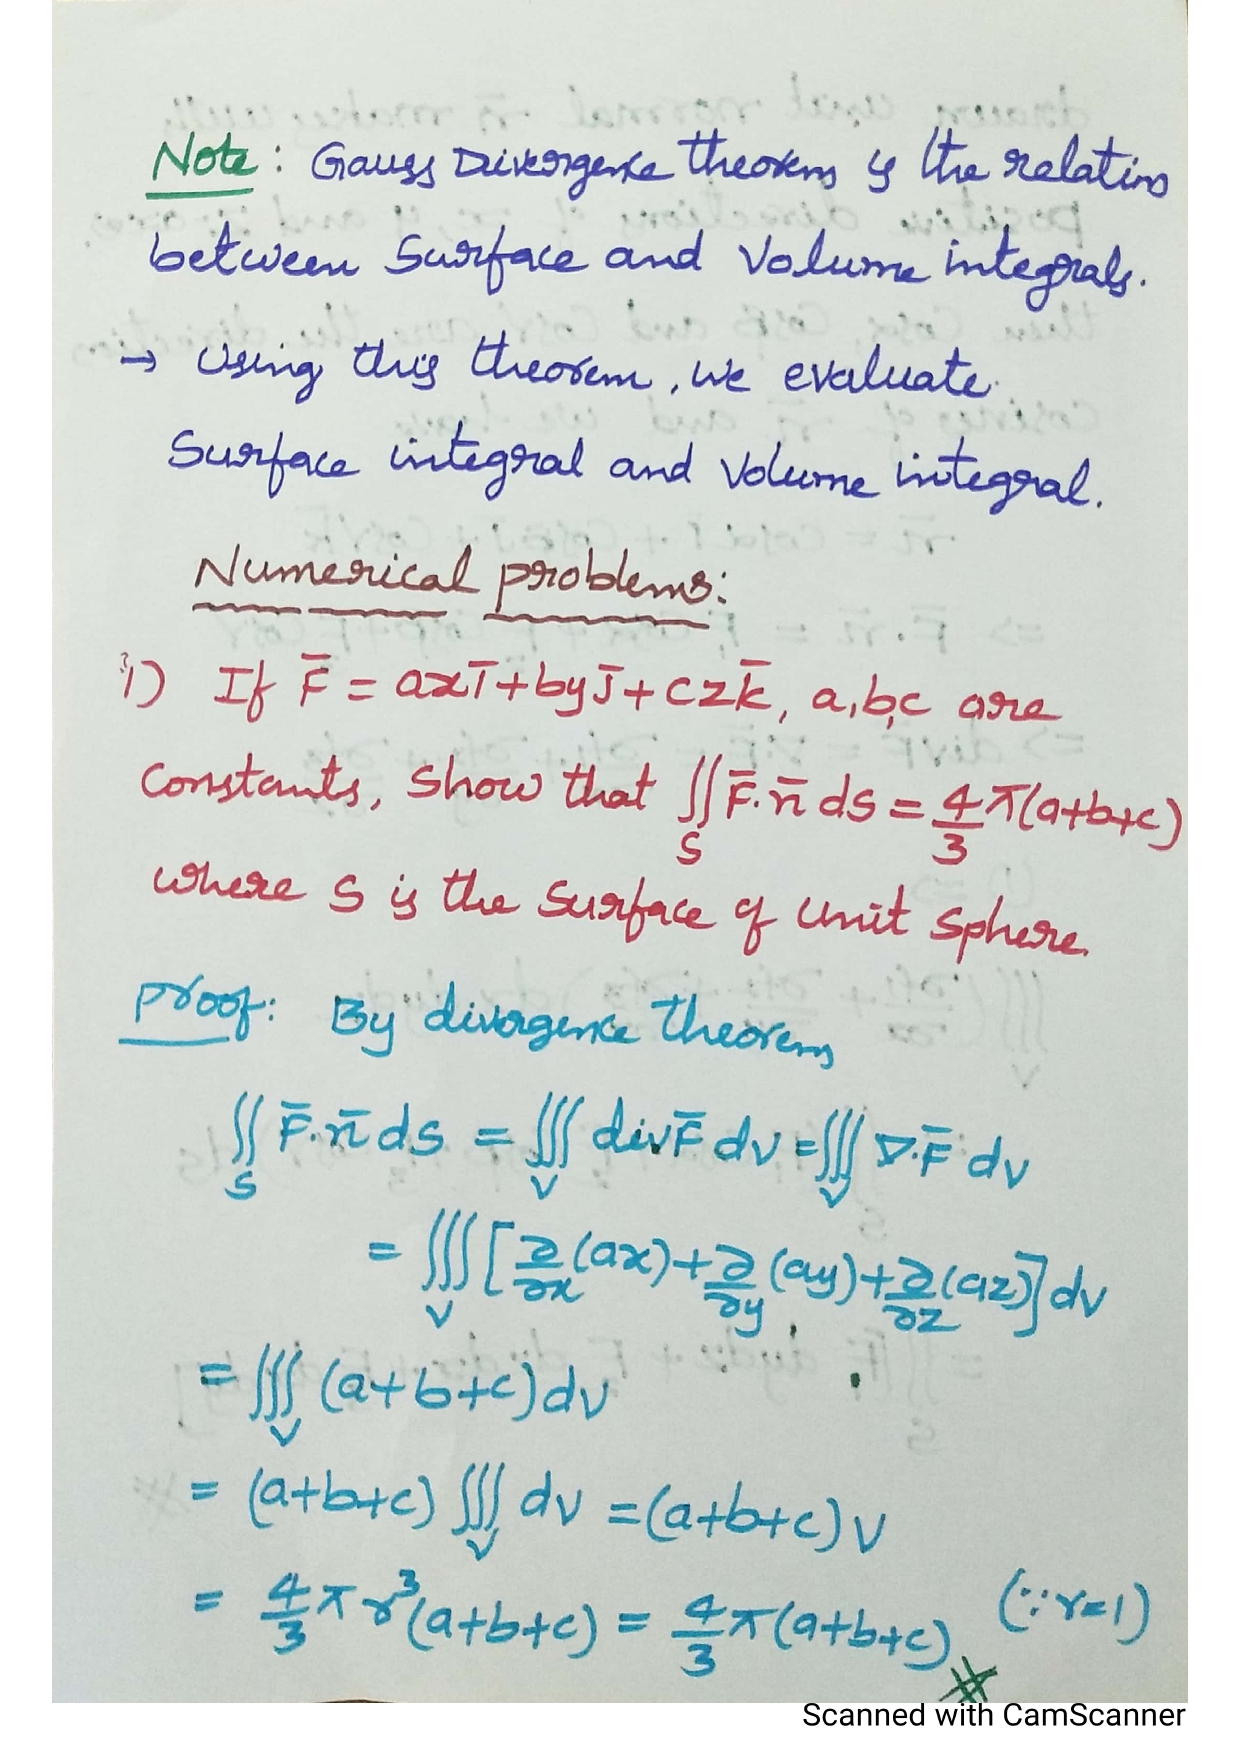 Note: Gauss Divergence theorem is the relation
between Surface and Volume integrals.
→ Using this theorem, we evaluate
Surface integral and Volume integral.
Numerical problems:
1) If F̄ = axī+byj̄+czk̄, a,b,c are
constants, Show that ∬_S F̄.n̄ ds = 4/3 π(a+b+c)
where S is the surface of unit sphere.
Proof: By divergence theorem
∬_S F̄.n̄ ds = ∭_V div F̄ dv = ∭_V ∇.F̄ dv
= ∭_V [∂/∂x (ax)+∂/∂y (ay)+∂/∂z (az)] dv
= ∭_V (a+b+c) dv
= (a+b+c) ∭_V dv = (a+b+c) V
= 4/3 π r³ (a+b+c) = 4/3 π (a+b+c) (∵ r=1)
Scanned with CamScanner